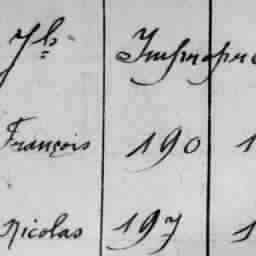 Jh
François 190 1
Nicolas 197 1